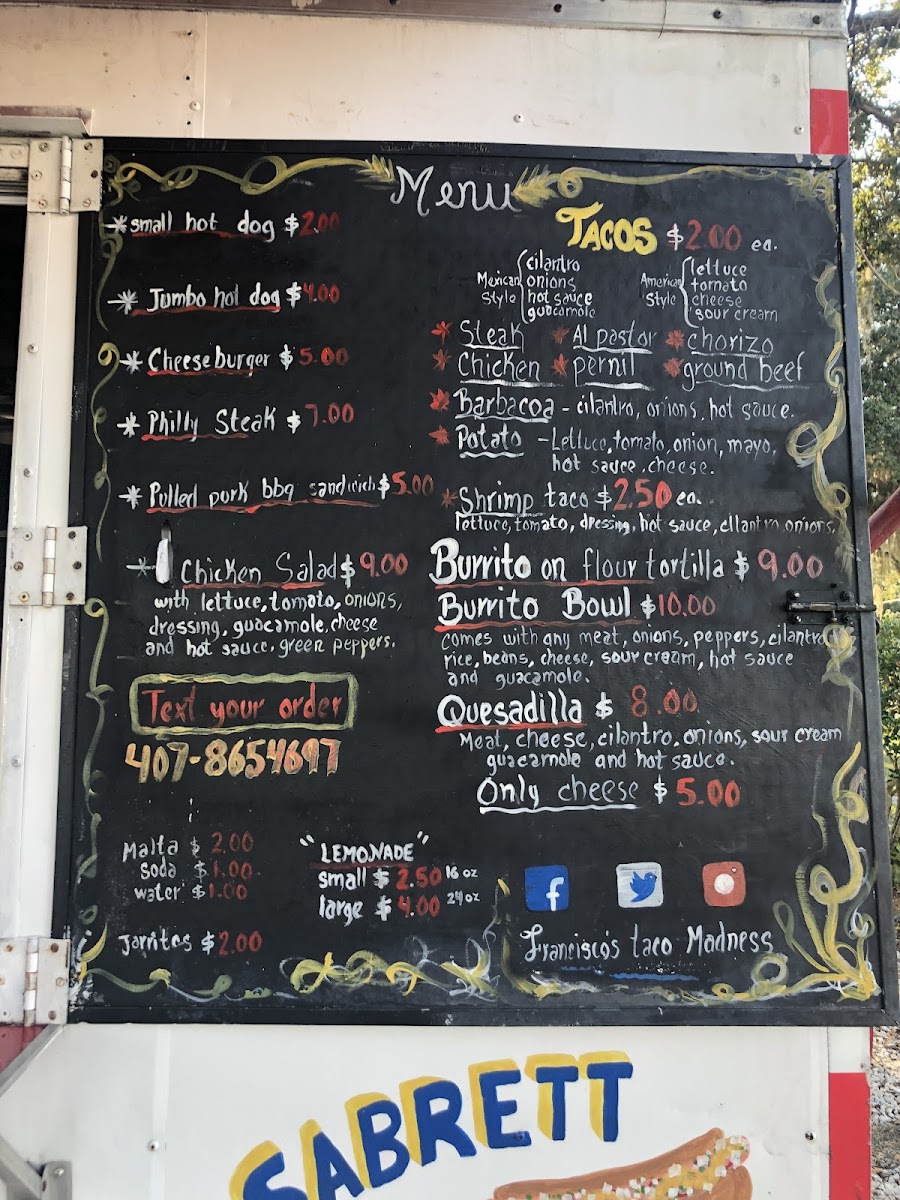 Menu
small hot dog $2.00
Jumbo hot dog $4.00
Cheeseburger $5.00
Philly Steak $7.00
Pulled pork bbq sandwich $5.00
Chicken Salad $9.00
with lettuce, tomato, onions,
dressing, guacamole, cheese
and hot sauce. green peppers.
Text your order
407-8654697
Malta $2.00
Soda $1.00
water $1.00
Jarritos $2.00
"LEMONADE"
small $2.50 16 oz
large $4.00 24 oz
TACOS $2.00 ea.
Mexican Style
cilantro
onions
hot sauce
guacamole
American Style
lettuce
tomato
cheese
sour cream
Steak Al pastor chorizo
Chicken pernil ground beef
Barbacoa - cilantro, onions, hot sauce.
Potato - Lettuce, tomato, onion, mayo,
hot sauce, cheese.
Shrimp taco $2.50 ea.
lettuce, tomato, dressing, hot sauce, cilantro, onions,
Burrito on flour tortilla $9.00
Burrito Bowl $10.00
comes with any meat, onions, peppers, cilantro
rice, beans, cheese, sour cream, hot sauce
and guacamole.
Quesadilla $8.00
Meat, cheese, cilantro, onions, sour cream
guacamole and hot sauce.
Only cheese $5.00
f
Francisco's taco Madness
SABRETT